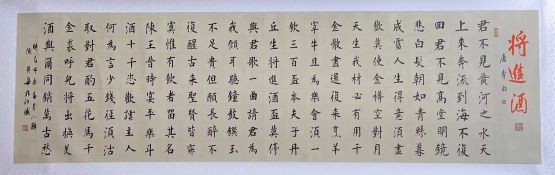 将進酒
唐 李白
君不見黄河之水天
上來奔流到海不復
回君不見高堂明鏡
悲白髮朝如青絲暮
成雪人生得意須盡
歡莫使金樽空對月
天生我材必有用千
金散盡還復來烹羊
宰牛且為樂會須一
飲三百杯岑夫子丹
丘生將進酒杯莫停
與君歌一曲請君為
我傾耳聽鐘鼓饌玉
不足貴但願長醉不
復醒古來聖賢皆寂
寞惟有飲者留其名
陳王昔時宴平樂斗
酒十千恣歡謔主人
何為言少錢徑須沽
取對君酌五花馬千
金裘呼兒將出換美
酒與爾同銷萬古愁